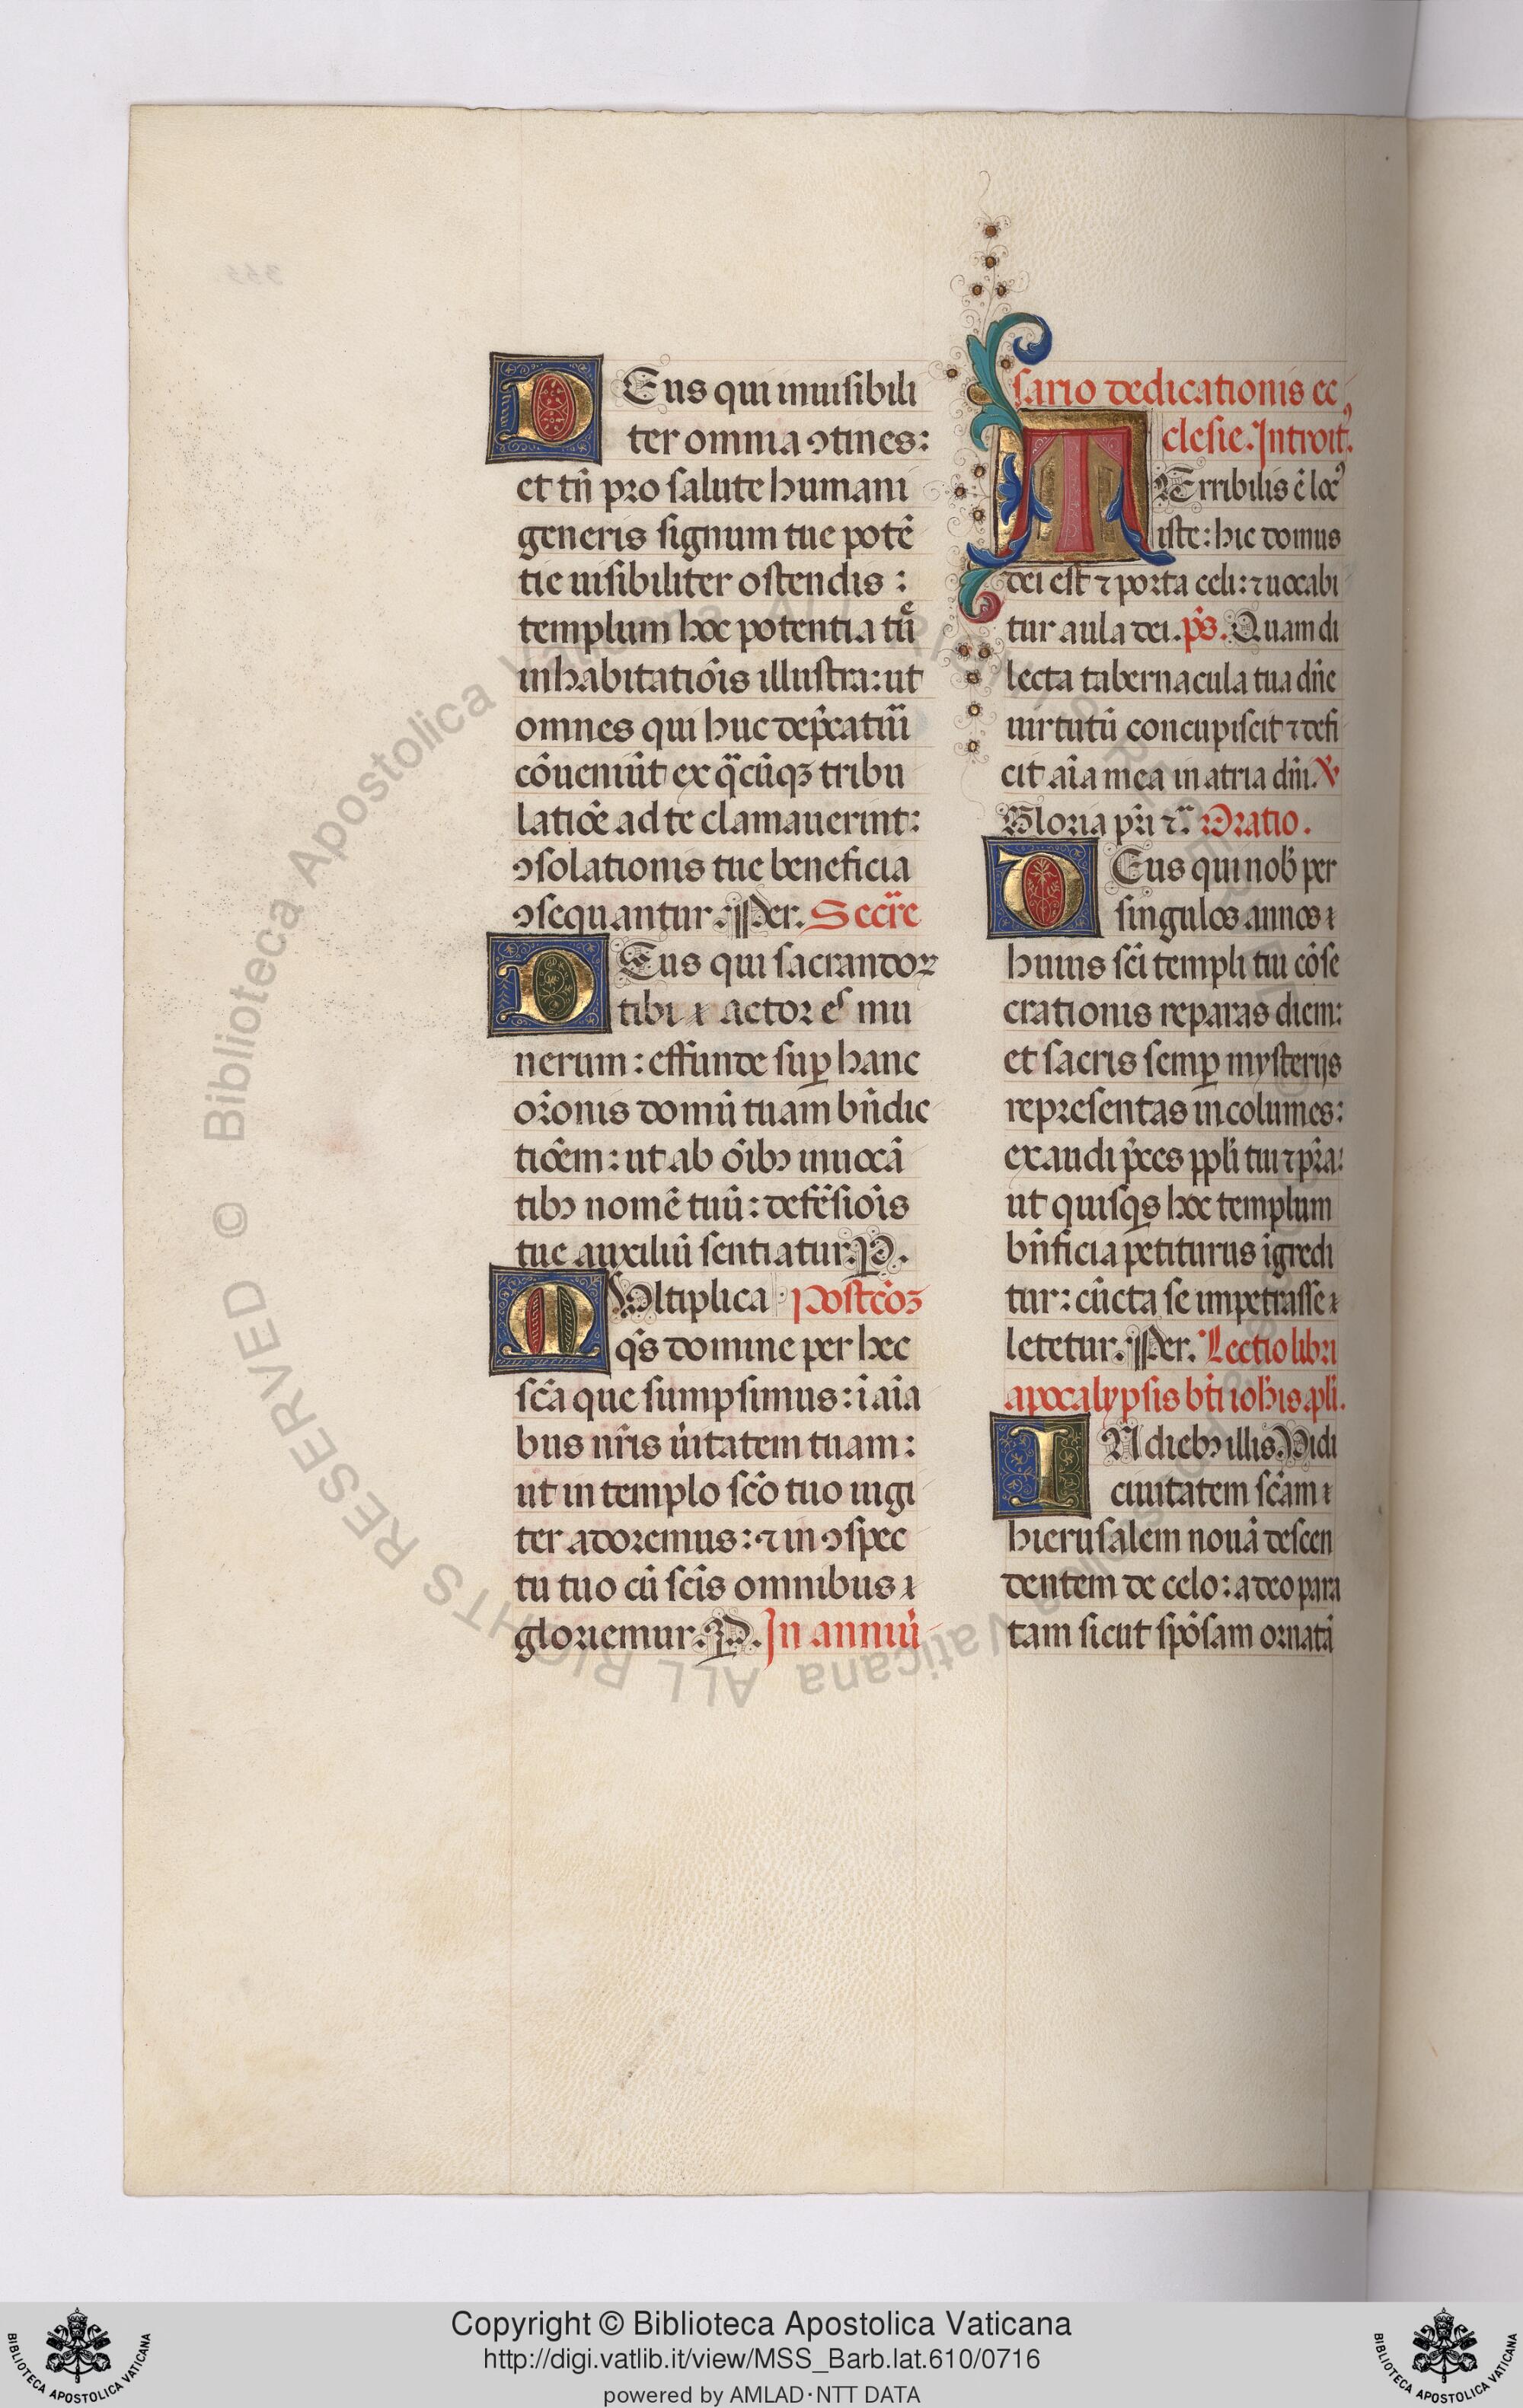 DEus qui inuisibili
ter omnia ꝯtines:
et tñ pro salute humani
generis signum tue potẽ
tie uisibiliter ostendis:
templum hoc potentia tuẽ
inhabitatiõis illustra: ut
omnes qui huc dep̃caturi
cõueniũt ex q̃cũqꝫ tribu
latiõe ad te clamauerint:
ꝯsolationis tue beneficia
ꝯsequantur. Per. Secr̃e
DEus qui sacrandoꝝ
tibi actor es mu
nerum: effunde suꝑ hanc
or̃onis domũ tuam bñdic
tiõem: ut ab oĩbꝫ inuocã
tibꝫ nomẽ tuũ: defẽsiõis
tue auxiliũ sentiatur. P.
MUltiplica Postcõꝫ
q̃s domine per hec
sc̃a que sumpsimus: ĩ aĩa
bus nr̃is ũitatem tuam:
ut in templo sc̃o tuo iugi
ter adoremus: ⁊ in ꝯspec
tu tuo cũ sc̃is omnibus
gloriemur. P. In anniũ
sario dedicationis ec
clesie. Introitꝰ.
TErribilis ẽ locꝰ
iste: hic domus
dei est ⁊ porta celi: ⁊ uocabi
tur aula dei. p̃s. Quam di
lecta tabernacula tua dñe
uirtutũ concupiscit ⁊ defi
cit aĩa mea in atria dñi. ℣
Gloria pr̃i ⁊c̃ Oratio.
DEus qui nob̃ per
singulos annos
huius sc̃i templi tui cõse
crationis reparas diem:
et sacris semꝑ mysterijs
representas incolumes:
exaudi p̃ces ppl̃i tui ⁊ pr̃a:
ut quisq̃s hoc templum
bñficia petiturus ĩgredi
tur: cũcta se impetrasse
letetur. Per. Lectio libri
apocalypsis bt̃i ioh̃is apl̃i.
IN diebꝫ illis. Uidi
ciuitatem sc̃am
hierusalem nouã descen
dentem de celo: a deo para
tam sicut spõsam ornatã
© Biblioteca Apostolica Vaticana ALL RIGHTS RESERVED
Copyright © Biblioteca Apostolica Vaticana
http://digi.vatlib.it/view/MSS_Barb.lat.610/0716
powered by AMLAD·NTT DATA
BIBLIOTECA APOSTOLICA VATICANA
BIBLIOTECA APOSTOLICA VATICANA